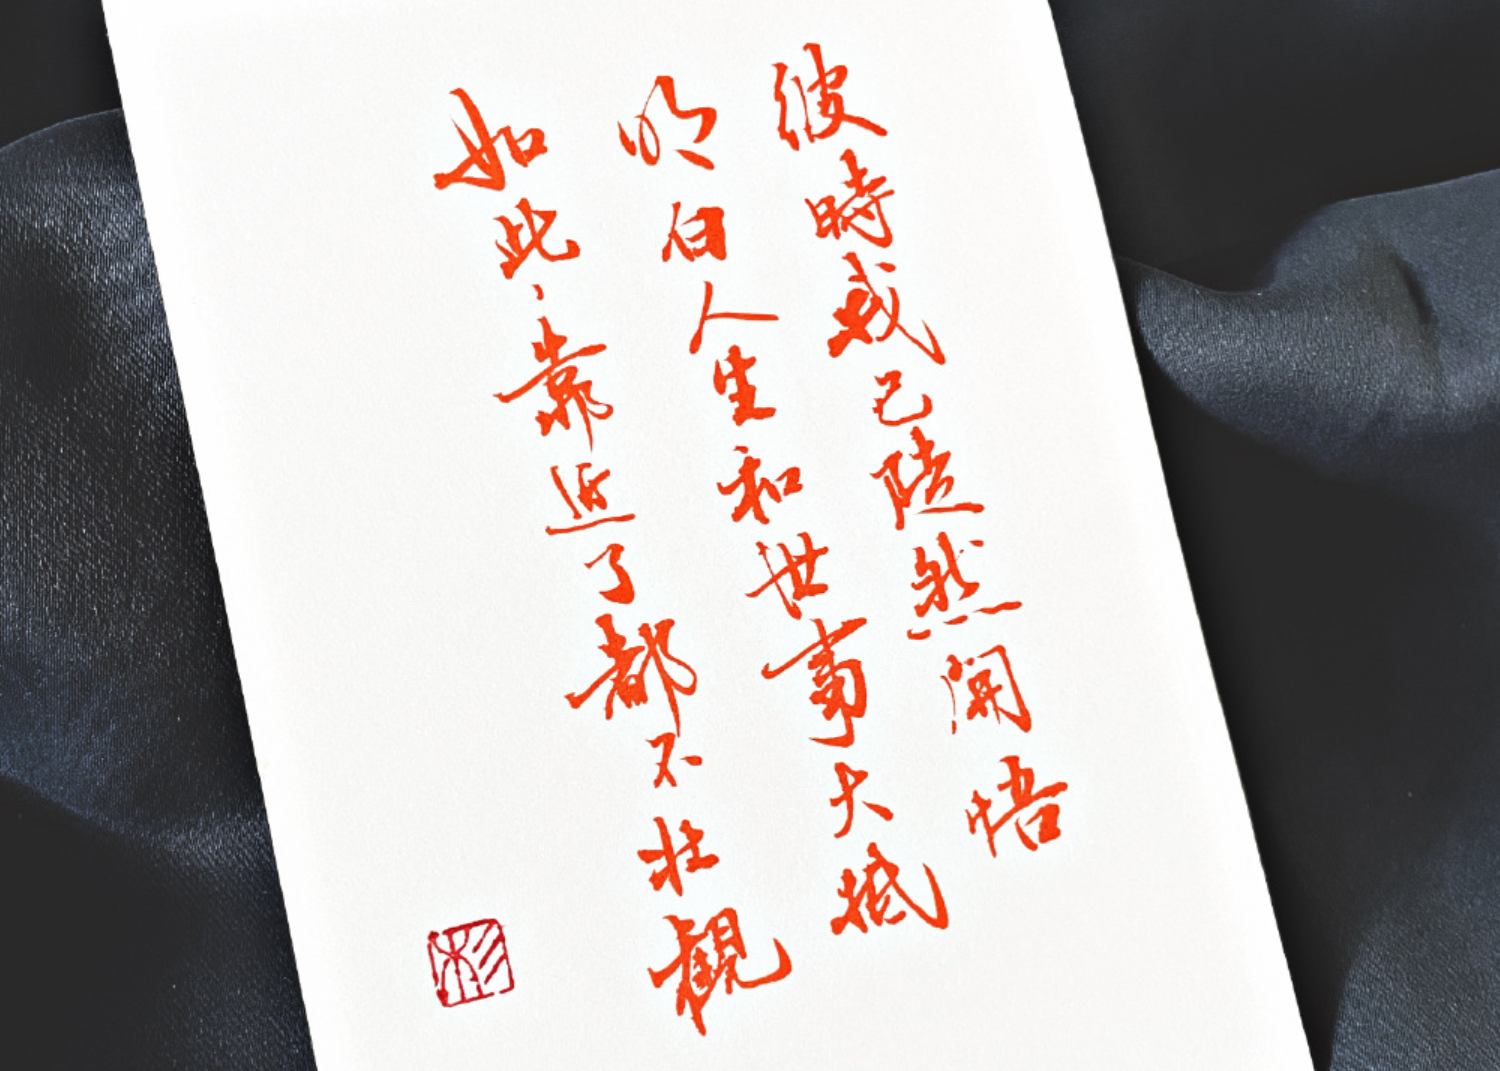 彼時我已陡然開悟
明白人生和世事大抵
如此、靠近了都不壮観
杉